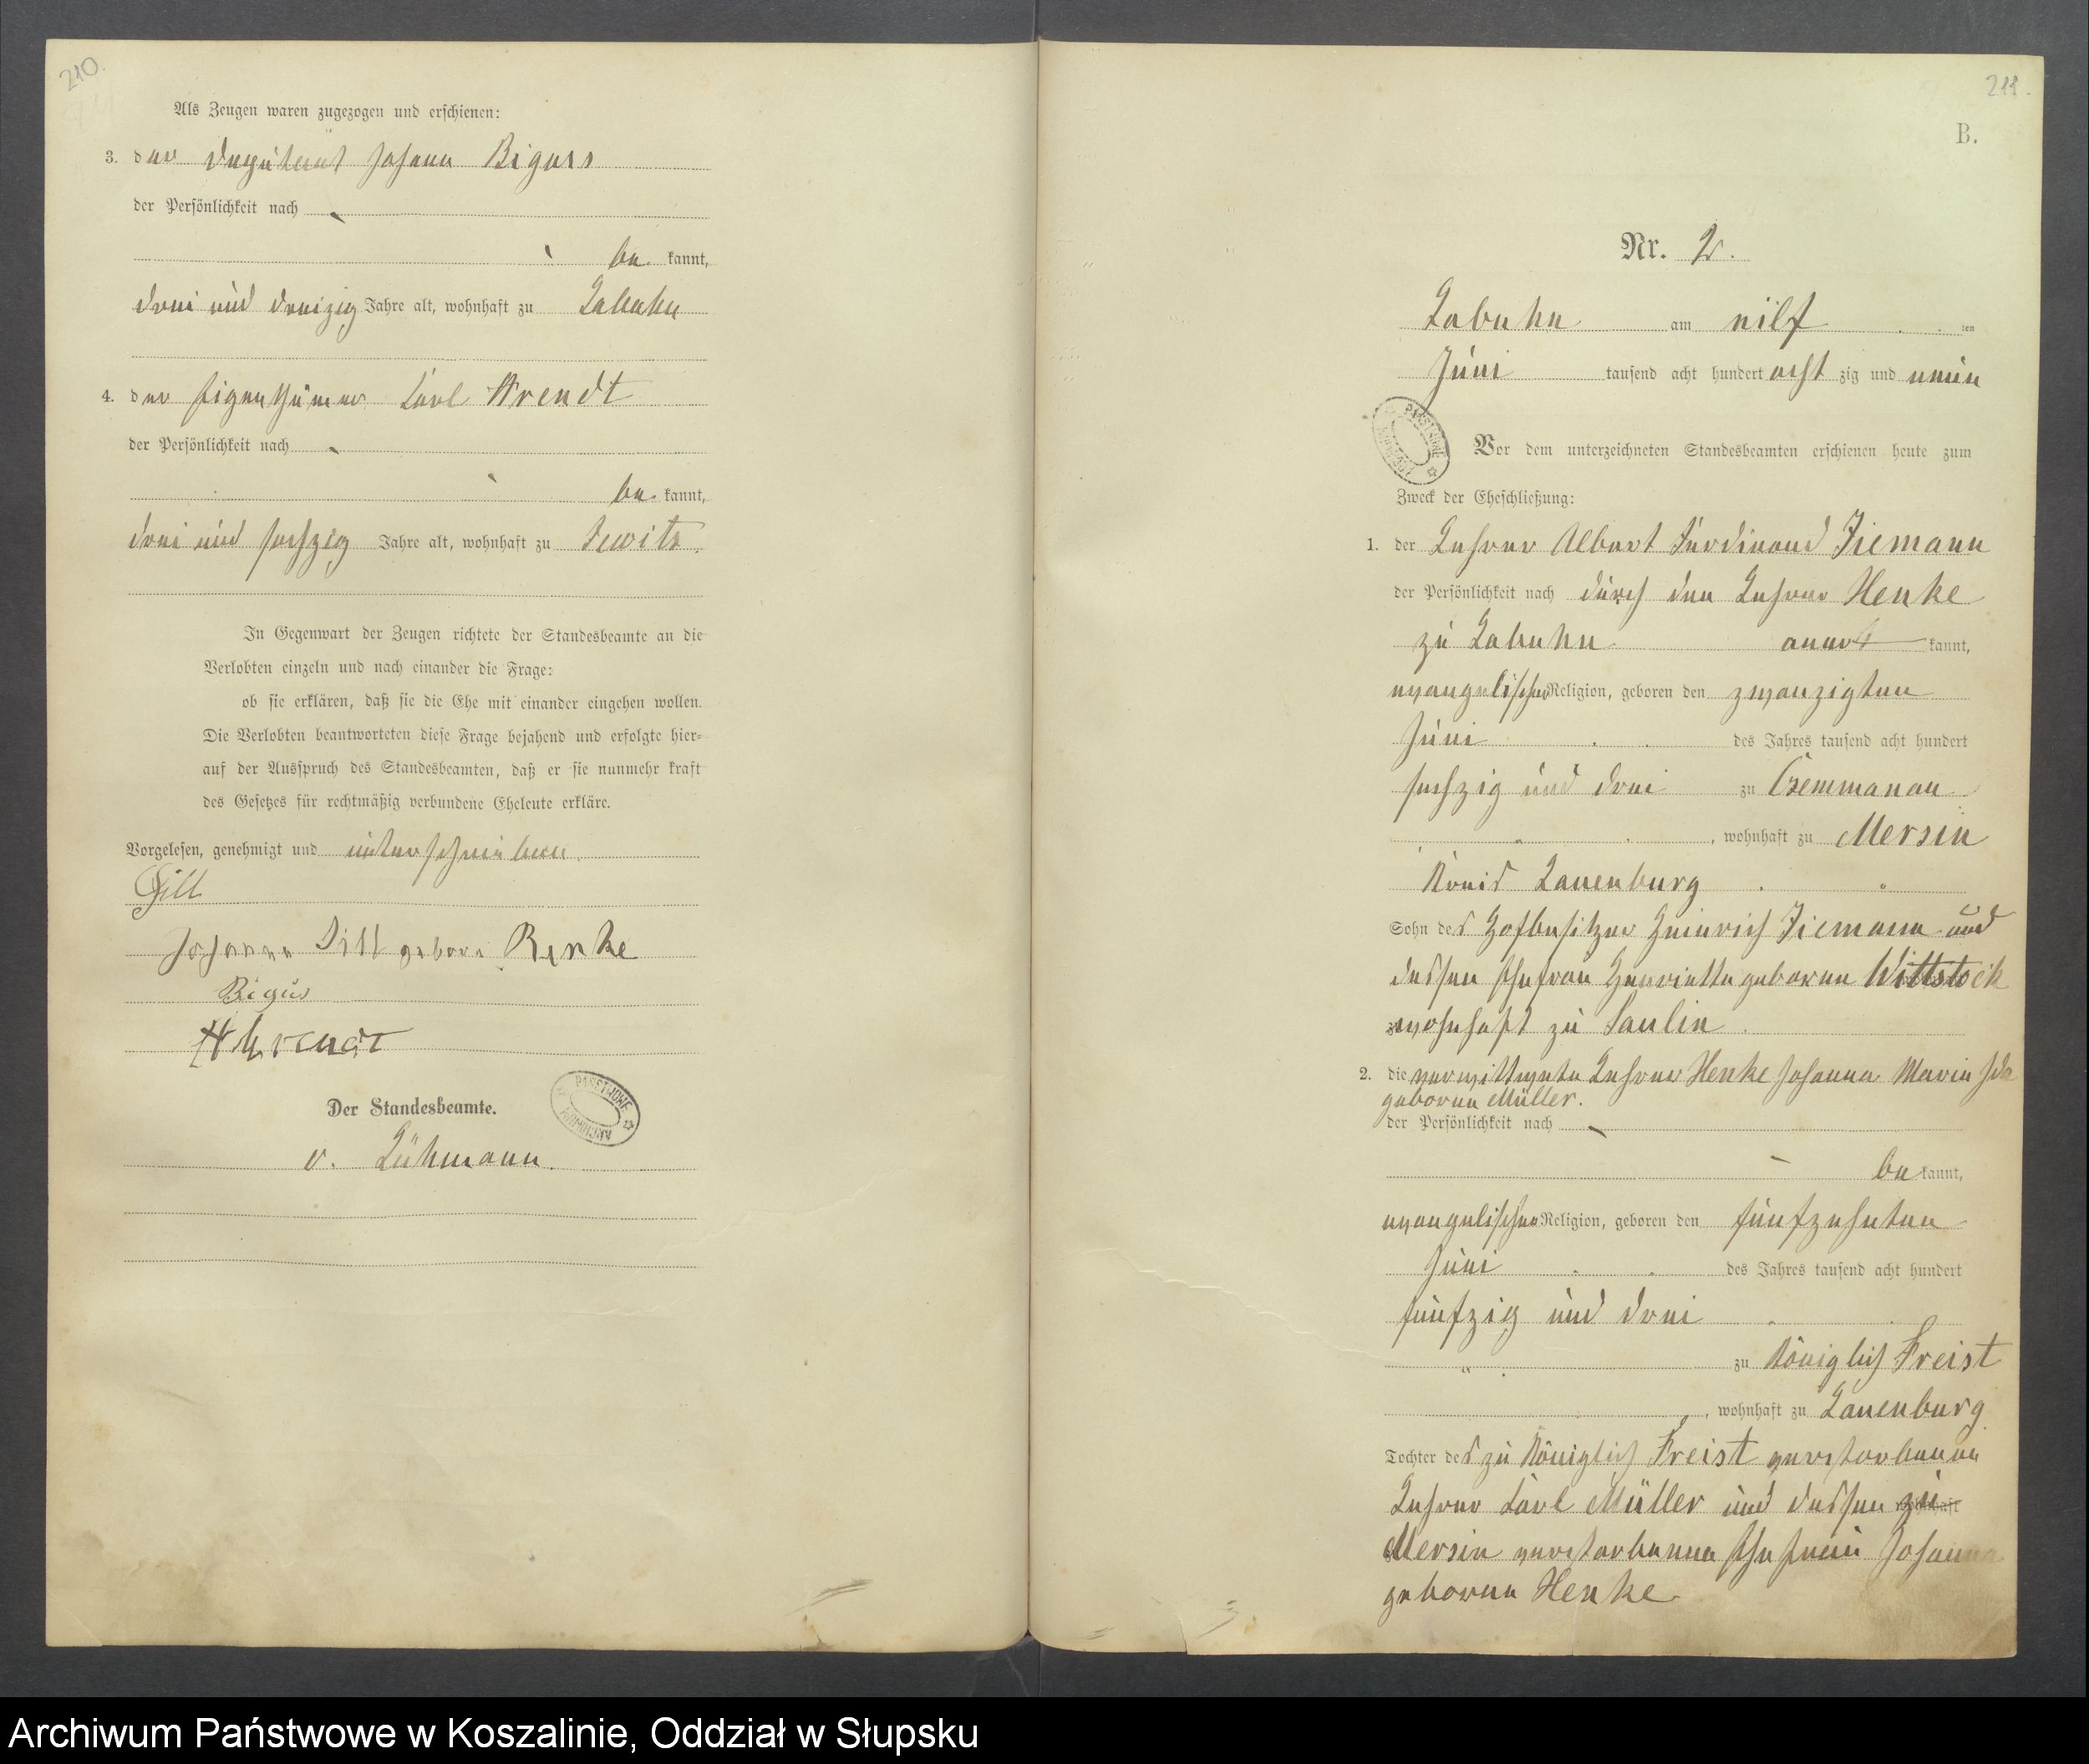 210.
Als Zeugen waren zugezogen und erschienen:
3. der Deputant Johann Biguss
der Persönlichkeit nach
be kannt,
drei und dreizig Jahre alt, wohnhaft zu Labuhn
4. der Eigenthümer Carl Arendt
der Persönlichkeit nach
be kannt,
drei und sechzig Jahre alt, wohnhaft zu Tewitz.
In Gegenwart der Zeugen richtete der Standesbeamte an die
Verlobten einzeln und nach einander die Frage:
ob sie erklären, daß sie die Ehe mit einander eingehen wollen.
Die Verlobten beantworteten diese Frage bejahend und erfolgte hier=
auf der Ausspruch des Standesbeamten, daß er sie nunmehr kraft
des Gesetzes für rechtmäßig verbundene Eheleute erkläre.
Vorgelesen, genehmigt und unterschrieben.
Johanna geborn
Bigus
Ahrendt
Der Standesbeamte.
v. Lühmann.
211.
B.
Nr. 2.
Labuhn am eilf ten
Juni tausend acht hundert acht zig und neun
Vor dem unterzeichneten Standesbeamten erschienen heute zum
Zweck der Eheschließung:
1. der Lehrer Albert Ferdinand Ziemann
der Persönlichkeit nach durch den Lehrer Henke
zu Labuhn anerkannt,
evangelischer Religion, geboren den zwanzigten
Juni des Jahres tausend acht hundert
sechzig und drei zu Czemmenau
, wohnhaft zu Mersin
Kreis Lauenburg
Sohn des Hofbesitzer Heinrich Ziemann und
dessen Ehefrau Henriette geborene Wittstock
wohnhaft zu Saulin
2. die verwittwete Lehrer Henke Johanna Marie Ida
geborene Müller.
der Persönlichkeit nach
be kannt,
evangelischer Religion, geboren den fünfzehnten
Juni des Jahres tausend acht hundert
fünfzig und drei
zu Königlich Freist
, wohnhaft zu Lauenburg
Tochter des zu Königlich Freist verstorbenen
Lehrer Carl Müller und dessen zu
Mersin verstorbenen Ehefrau Johanna
geborene Henke
Archiwum Państwowe w Koszalinie, Oddział w Słupsku